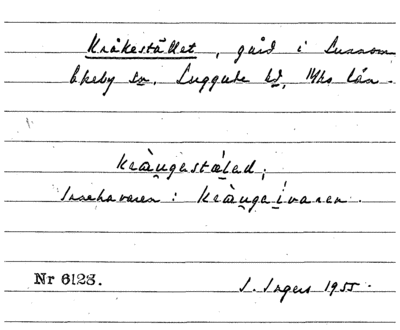 Kråkestället, gård i Sunnom
Ekeby sn. Luggude hd, Mhs län.
Kràu̲gastá̲lad;
Innehavaren: Kràu̲gaí̲varen.
Nr 6128.
I. Ingers 1955.